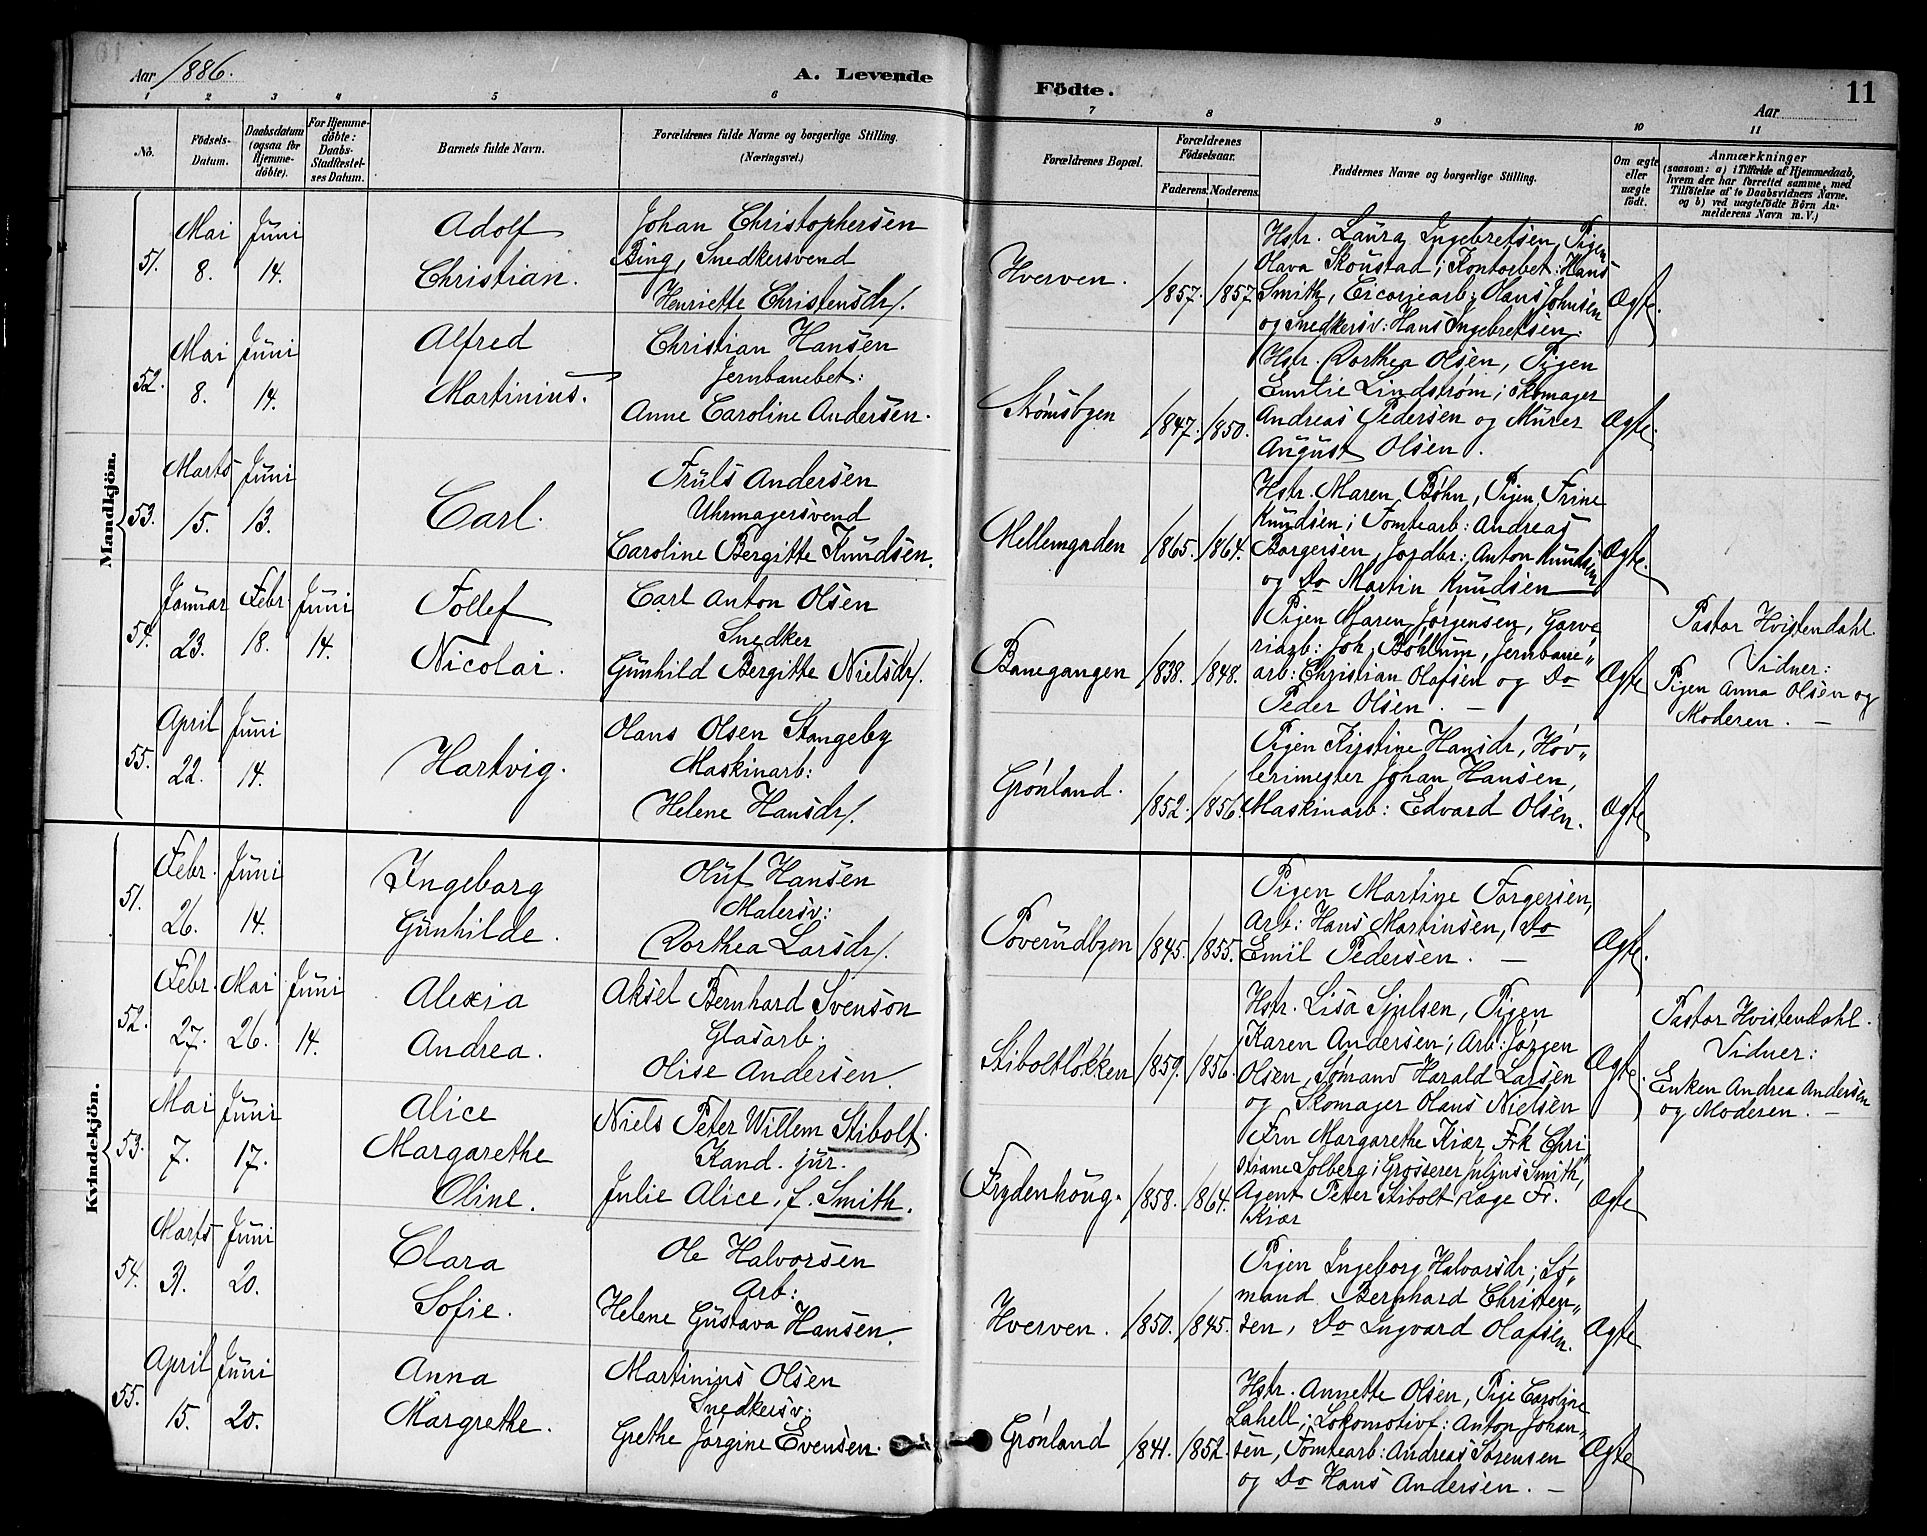 Aar 1886.
A. Levende
Födte.
Aar
11
1 2 3 4 5 6 7 8 9 10 11
No.
Födsels-
Datum.
Daabsdatum
(ogsaa for
Hjemme-
döbte).
For Hjemme-
döbte:
Daabs-
Stadfæstel-
ses Datum.
Barnets fulde Navn.
Forældrenes fulde Navne og borgerlige Stilling.
(Næringsvei.)
Forældrenes Bopæl.
Forældrenes
Födselsaar.
Faderens. Moderens.
Faddernes Navne og borgerlige Stilling.
Om ægte
eller
uægte
födt.
Anmærkninger
(saasom: a) i Tilfælde af Hjemmedaab,
hvem der har forrettet samme, med
Tilföielse af to Daabsvidners Navne.
og b) ved uægtefödte Börn An-
melderens Navn m. V.)
Mandkjön.
51.
Mai
8.
Juni
14.
Adolf
Christian.
Johan Christophersen
Bing, Snedkersvend
Henriette Christensdr.
Hverven.
1857. 1857.
Hstr. Laura Ingebretsen, Pigen
Olava Skoustad; Kontorbet: Hans
Smith, Cicoriearb: Olaus Johnsen
og Snedkersv: Hans Ingebretsen.
Ægte.
52.
Mai
8.
Juni
14.
Alfred
Martinius.
Christian Hansen
Jernbanebet:
Anne Caroline Andersen.
Strømsbyen
1847. 1850.
Hstr. Dorthea Olsen, Pigen
Emilie Lindstrøm; Skomager
Andreas Pedersen og Murer
August Olsen.
Ægte.
53.
Marts
15.
Juni
13.
Carl.
Truls Andersen
Uhrmagersvend
Caroline Bergitte Knudsen.
Mellemgaden
1865. 1864.
Hstr. Maren Bøhn, Pigen Trine
Knudsen; Tomtearb: Andreas
Borgersen, Jordbr: Anton Knudsen
og Do Martin Knudsen
Ægte.
54.
Januar
23.
Febr.
18.
Juni
14.
Tollef
Nicolai.
Carl Anton Olsen
Snedker
Gunhild Bergitte Nielsdr.
Banegangen
1838. 1848.
Pigen Maren Jørgensen, Garve
riarb: Joh. Bøhlum, Jernbane„
arb: Christian Olafsen og Do
Peder Olsen. —
Ægte
Pastor Hvistendahl.
Vidner:
Pigen Anna Olsen og
Moderen. —
55.
April
22.
Juni
14.
Hartvig.
Olaus Olsen Stangeby
Maskinarb:
Helene Hansdr.
Grønland.
1852. 1856.
Pigen Kirstine Hansdr, Høv„
lerimester Johan Hansen,
Maskinarb: Edvard Olsen.
Ægte
Kvindekjön.
51.
Febr.
26.
Juni
14.
Ingeborg
Gunhilde.
Oluf Hansen
Malersv:
Dorthea Larsdr.
Toverudbyen
1845. 1855.
Pigen Martine Torgersen,
Arb: Hans Martinsen, Do
Emil Pedersen. —
Ægte.
52.
Febr.
27.
Mai
26.
Juni
14.
Alexia
Andrea.
Aksel Bernhard Svenson
Glasarb:
Olise Andersen.
Stiboltløkken
1859. 1856.
Hstr. Lisa Sjulsen, Pigen
Karen Andersen; Arb: Jørgen
Olsen, Sømand Harald Larsen
og Skomager Olaus Nielsen
Ægte.
Pastor Hvistendahl.
Vidner:
Enken Andrea Andersen
og Moderen. —
53.
Mai
7.
Juni
17.
Alice
Margarethe
Oline.
Niels Peter Willem Stibolt.
Kand. jur.
Julie Alice, f. Smith.
Frydenhoug.
1858. 1864.
Fru Margarethe Kiær, Frk Chri
stiane Solberg; Grosserer Julius Smith,
Agent Peter Stibolt Læge Fr.
Kiær
Ægte
54.
Marts
31.
Juni
20.
Clara
Sofie.
Ole Halvorsen
Arb:
Helene Gustava Hansen.
Hverven.
1850. 1845.
Pigen Ingeborg Halvorsdr; Sø„
mand Bernhard Christen„
sen, Do Ingvard Olafsen.
Ægte
55.
April
15.
Juni
20.
Anna
Margrethe.
Martinius Olsen
Snedkersv:
Grethe Jørgine Evensen.
Grønland
1841. 1852.
Hstr. Annette Olsen, Pige Caroline
Lahell; Lokomotivf: Anton Johan„
sen, Tomtearb: Andreas Sørensen
og Do Hans Andersen. —
Ægte